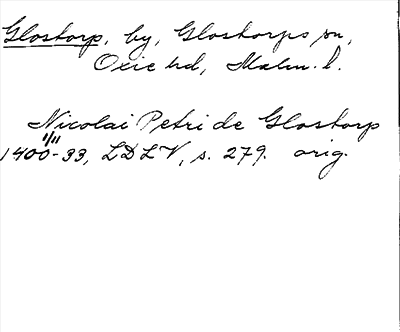 Glostorp, by, Glostorps sn,
Oxie hd, Malm. l.
Nicolai Petri de Glostorp
1/11
1400-33, LDLV, s. 279. orig.